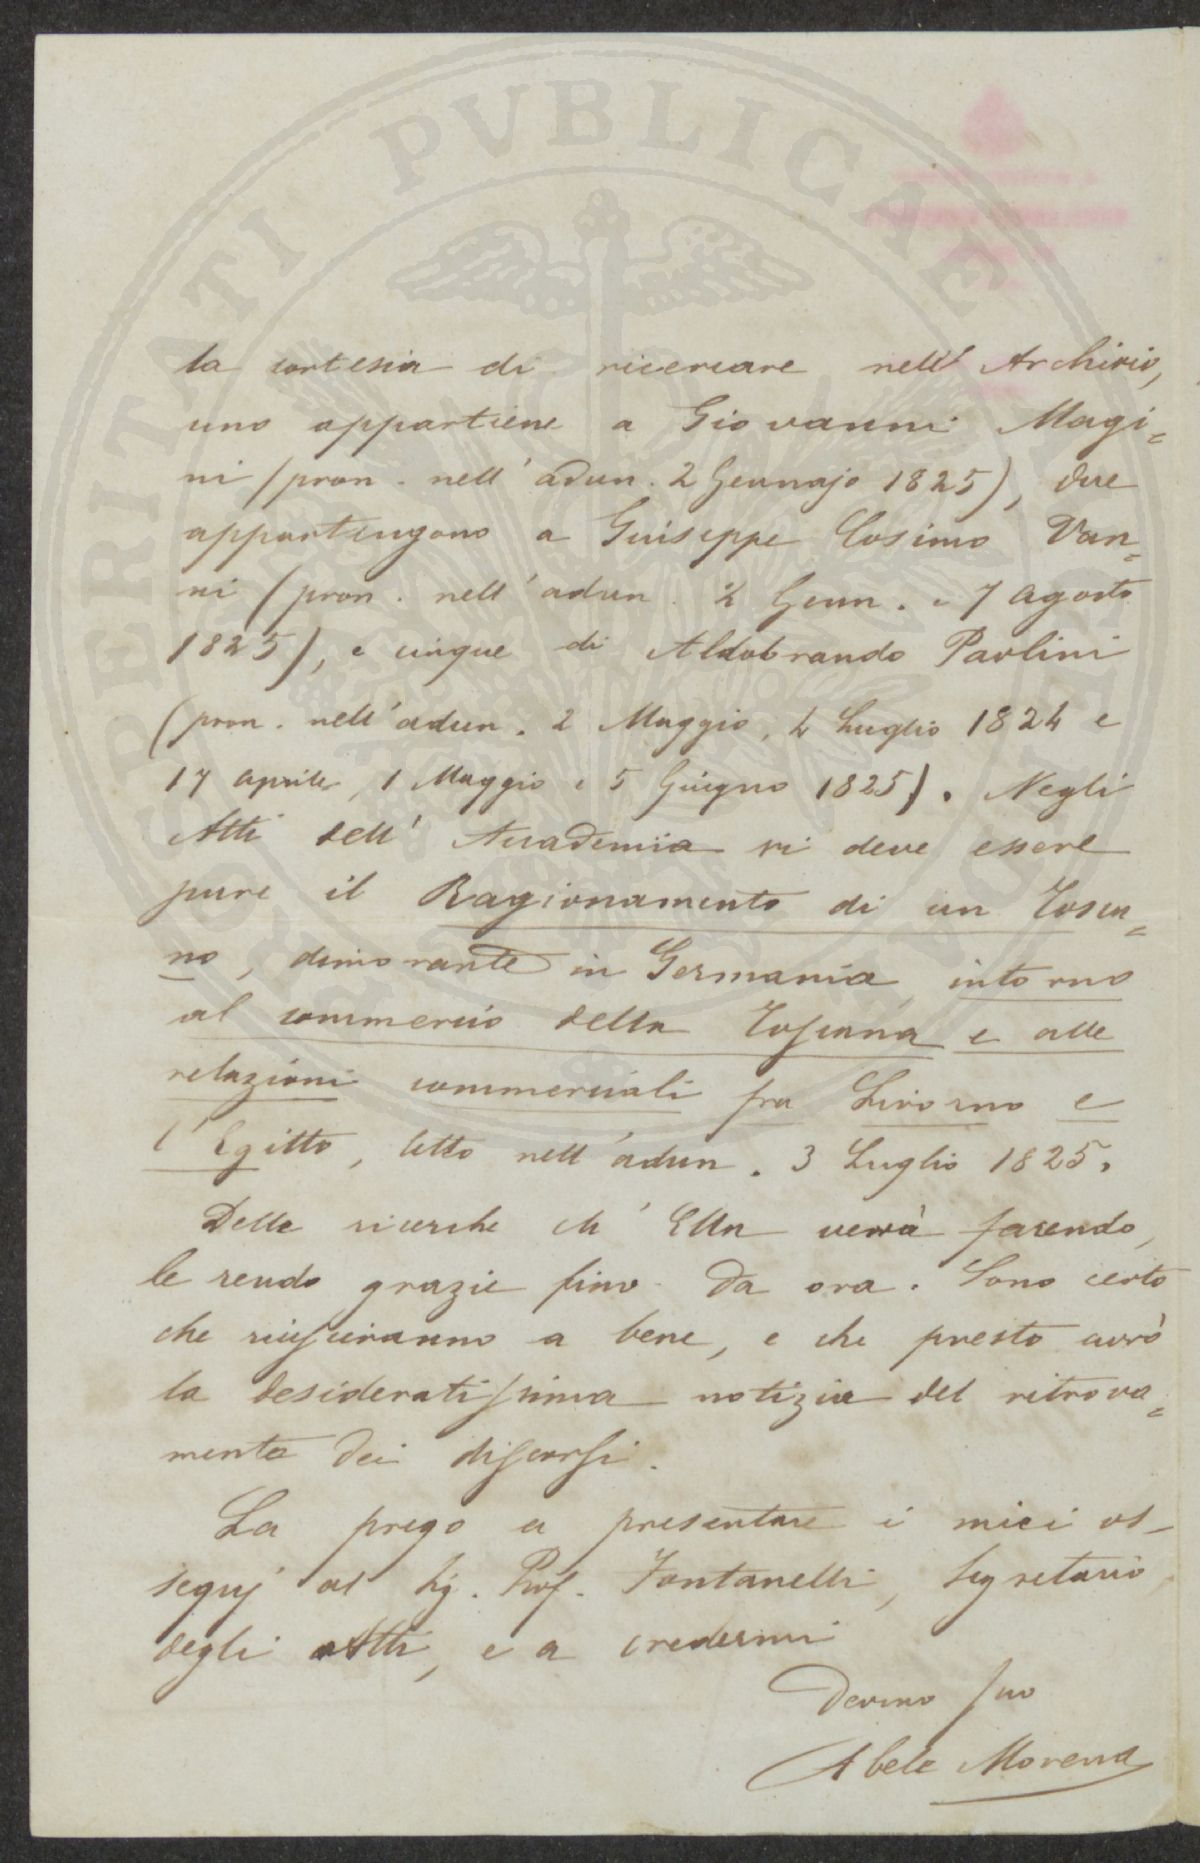 PROSPERITATI PUBLICAE
la cortesia di ricercare nell'Archivio,
uno appartiene a Giovanni Magi=
ni (pron. nell'adun. 2 Gennajo 1825), due
appartengono a Giuseppe Cosimo Van=
ni (pron. nell'adun. 2 Genn. e 7 Agosto
1825), e cinque di Aldobrando Paolini
(pron. nell'adun. 2 Maggio, 4 Luglio 1824 e
17 aprile, 1 Maggio e 5 Giugno 1825). Negli
Atti dell'Accademia vi deve essere
pure il Ragionamento di un Tosca=
no, dimorante in Germania, intorno
al commercio della Toscana e alle
relazioni commerciali fra Livorno e
l'Egitto, letto nell'adun. 3 Luglio 1825.
Delle ricerche ch'Ella verrà facendo,
le rendo grazie fino da ora. Sono certo
che riusciranno a bene, e che presto avrò
la desideratissima notizia del ritrova=
mento dei discorsi.
La prego a presentare i miei os-
sequj al Sig. Prof. Fontanelli, Segretario
degli Atti, e a credermi
Devmo suo
Abele Morena